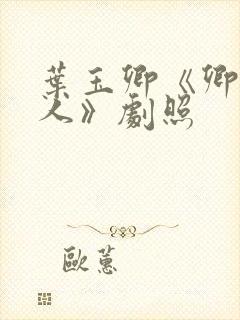 葉玉卿《卿
人》劇照
歐蕙